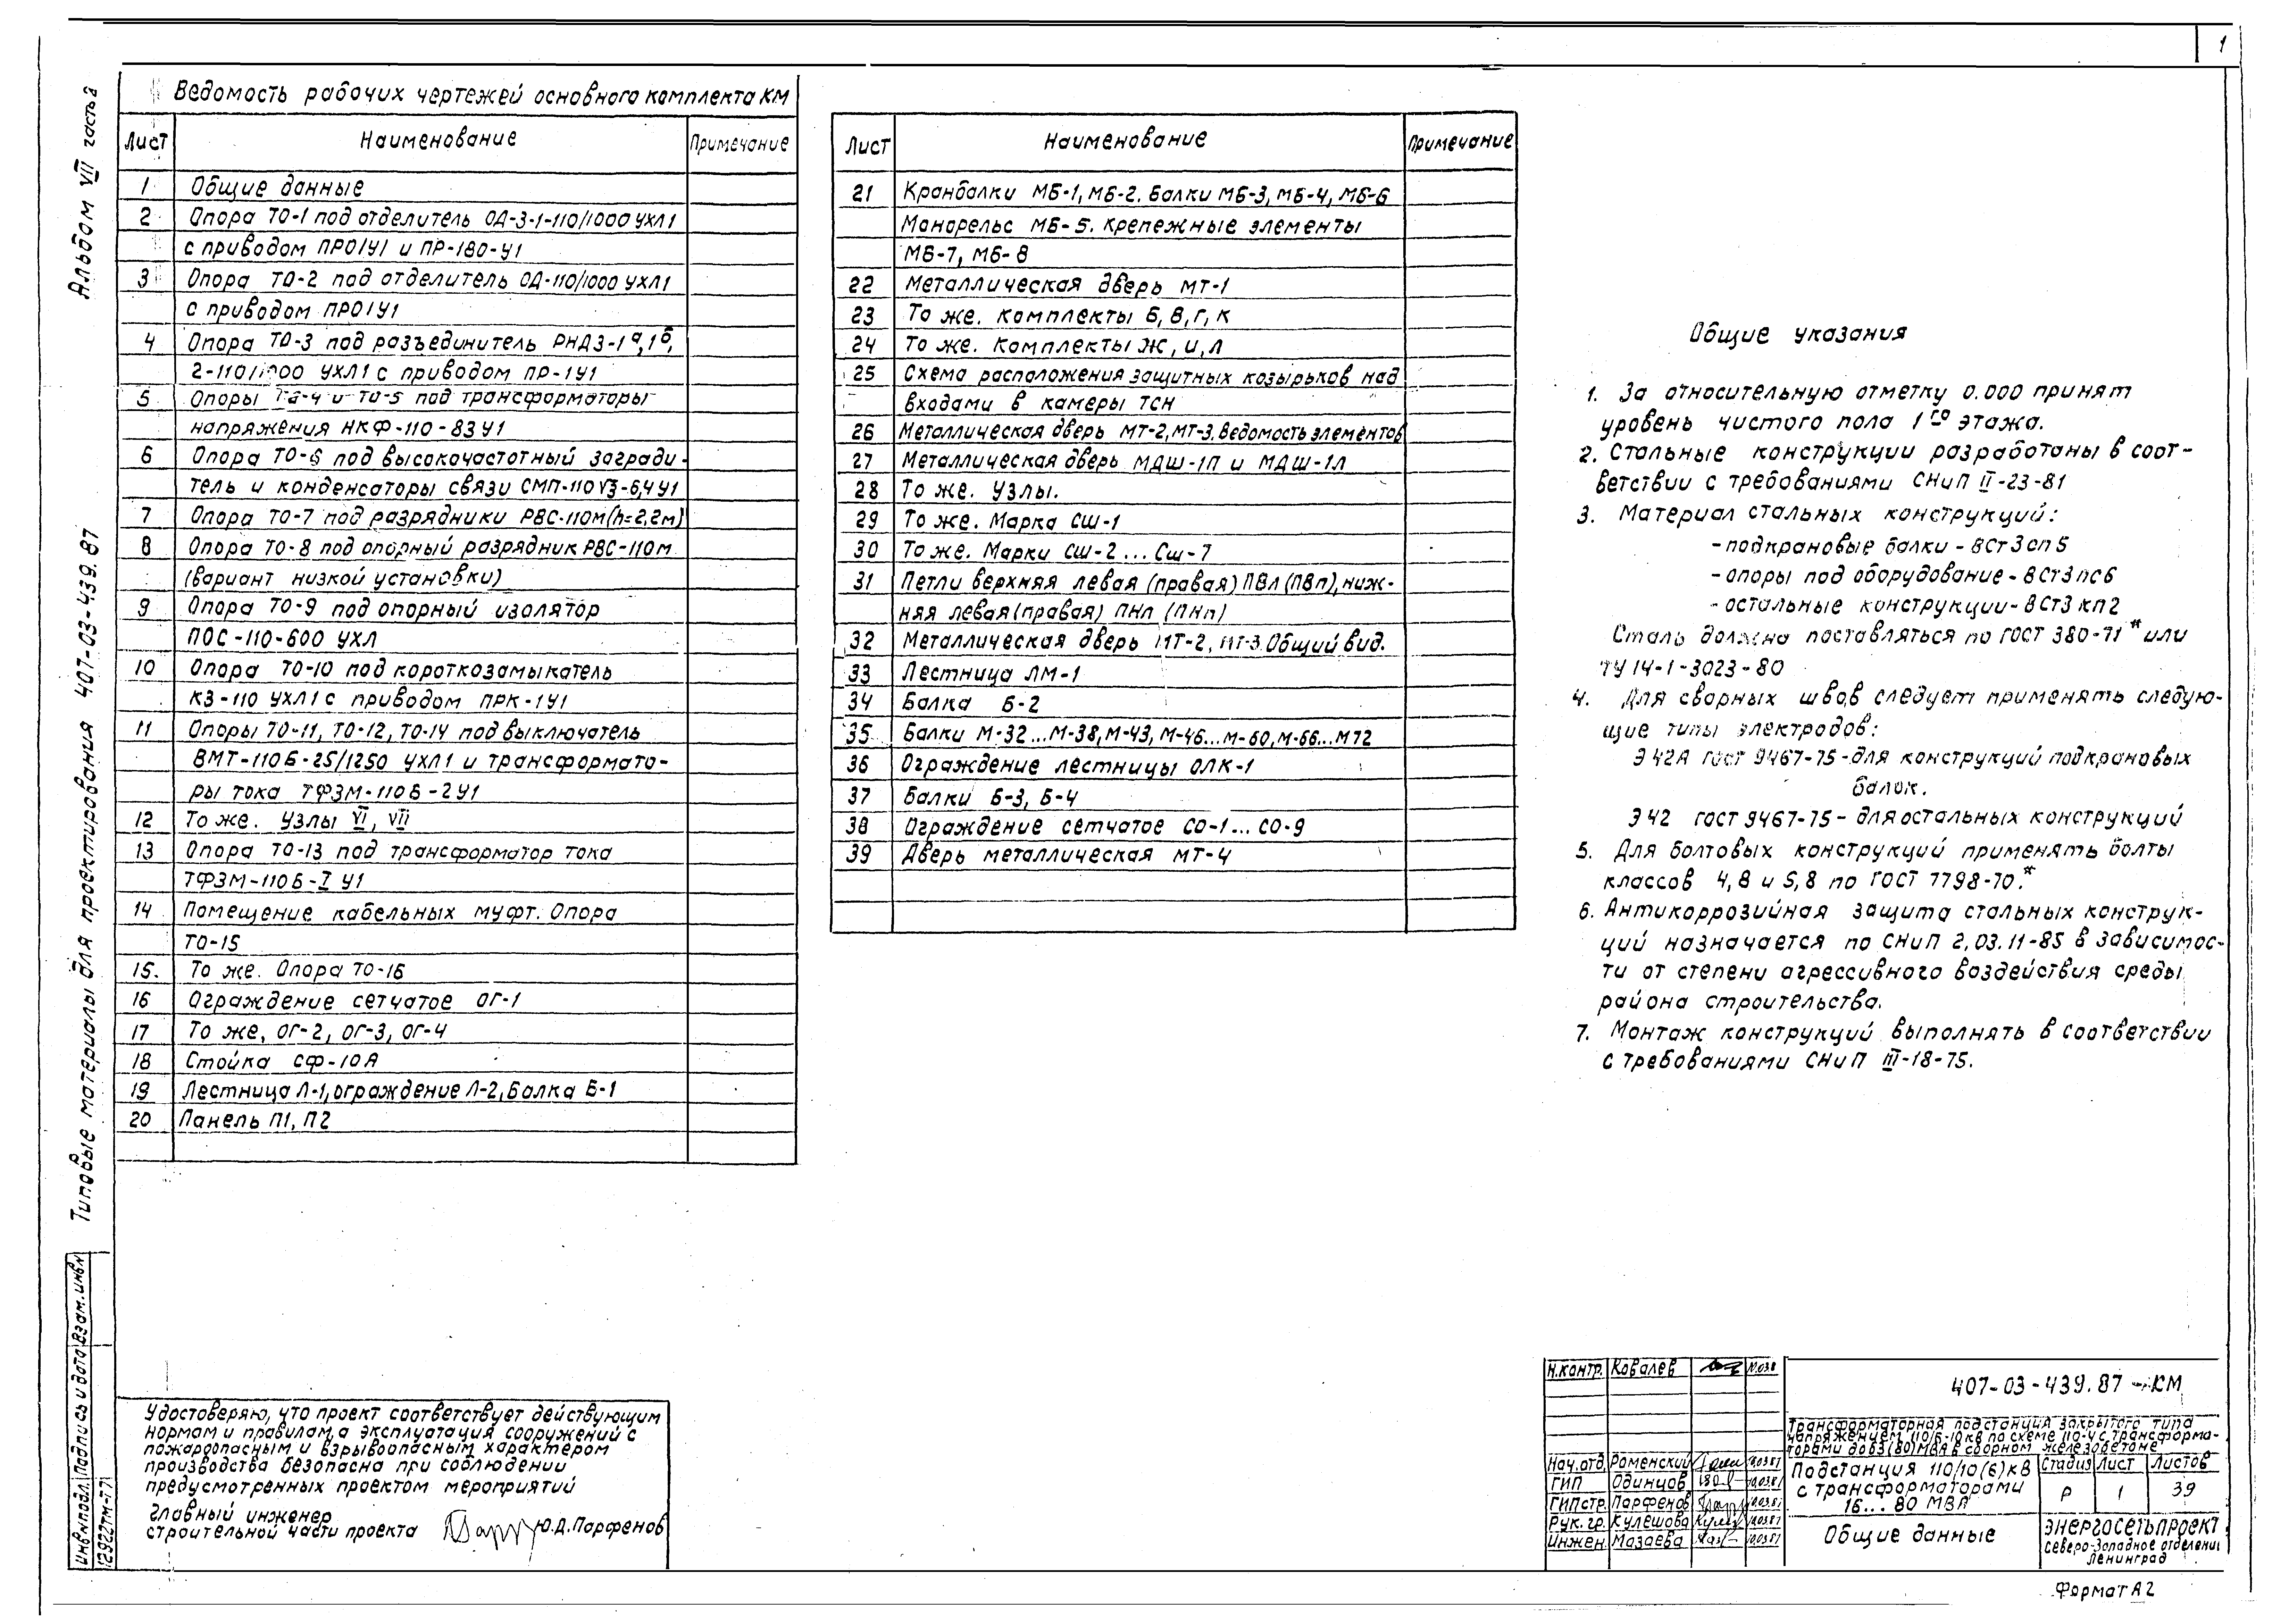 1
Альбом VII часть 2
Типовые материалы для проектирования 407-03-439.87
Ведомость рабочих чертежей основного комплекта КМ
Лист Наименование Примечание
1 Общие данные
2 Опора ТО-1 под отделитель ОД-3-1-110/1000 УХЛ1
с приводом ПРО1У1 и ПР-180-У1
3 Опора ТО-2 под отделитель ОД-110/1000 УХЛ1
с приводом ПРО1У1
4 Опора ТО-3 под разъединитель РНДЗ-1а,1б,
2-110/1000 УХЛ1 с приводом ПР-1У1
5 Опоры ТО-4 и ТО-5 под трансформаторы
напряжения НКФ-110-83У1
6 Опора ТО-6 под высокочастотный загради-
тель и конденсаторы связи СМП-110√3-6,4У1
7 Опора ТО-7 под разрядники РВС-110м(h=2,2м)
8 Опора ТО-8 под опорный разрядник РВС-110м
(вариант низкой установки)
9 Опора ТО-9 под опорный изолятор
ПОС-110-600 УХЛ
10 Опора ТО-10 под короткозамыкатель
КЗ-110 УХЛ1 с приводом ПРК-1У1
11 Опоры ТО-11, ТО-12, ТО-14 под выключатель
ВМТ-110Б-25/1250 УХЛ1 и трансформато-
ры тока ТФЗМ-110Б-2У1
12 То же. Узлы VI, VII
13 Опора ТО-13 под трансформатор тока
ТФЗМ-110Б-I У1
14 Помещение кабельных муфт. Опора
ТО-15
15. То же. Опора ТО-16
16 Ограждение сетчатое ОГ-1
17 То же, ОГ-2, ОГ-3, ОГ-4
18 Стойка СФ-10А
19 Лестница Л-1, ограждение Л-2, Балка Б-1
20 Панель П1, П2
Лист Наименование Примечание
21 Кранбалки МБ-1, МБ-2. Балки МБ-3, МБ-4, МБ-6
Монорельс МБ-5. Крепежные элементы
МБ-7, МБ-8
22 Металлическая дверь МТ-1
23 То же. Комплекты Б, В, Г, К
24 То же. Комплекты Ж, И, Л
25 Схема расположения защитных козырьков над
входами в камеры ТСН
26 Металлическая дверь МТ-2, МТ-3. Ведомость элементов
27 Металлическая дверь МДШ-1П и МДШ-1Л
28 То же. Узлы.
29 То же. Марка СШ-1
30 То же. Марки СШ-2 ... СШ-7
31 Петли верхняя левая (правая) ПВЛ (ПВп), ниж-
няя левая (правая) ПНл (ПНп)
32 Металлическая дверь МТ-2, МТ-3. Общий вид.
33 Лестница ЛМ-1
34 Балка Б-2
35 Балки М-32...М-38, М-43, М-46...М-60, М-66...М72
36 Ограждение лестницы ОЛК-1
37 Балки Б-3, Б-4
38 Ограждение сетчатое СО-1 ... СО-9
39 Дверь металлическая МТ-4
Общие указания
1. За относительную отметку 0.000 принят
уровень чистого пола 1го этажа.
2. Стальные конструкции разработаны в соот-
ветствии с требованиями СНиП II-23-81
3. Материал стальных конструкций:
- подкрановые балки - ВСт3сп5
- опоры под оборудование - ВСт3пс6
- остальные конструкции - ВСт3кп2
Сталь должна поставляться по ГОСТ 380-71* или
ТУ 14-1-3023-80
4. Для сварных швов следует применять следую-
щие типы электродов:
Э42А ГОСТ 9467-75 - для конструкций подкрановых
балок.
Э42 ГОСТ 9467-75 - для остальных конструкций
5. Для болтовых конструкций применять болты
классов 4,8 и 5,8 по ГОСТ 7798-70.*
6. Антикоррозийная защита стальных конструк-
ций назначается по СНиП 2.03.11-85 в зависимос-
ти от степени агрессивного воздействия среды
района строительства.
7. Монтаж конструкций выполнять в соответствии
с требованиями СНиП III-18-75.
Инв№подл. Подпись и дата Взам.инв№
12922тм-т7
Удостоверяю, что проект соответствует действующим
нормам и правилам, а эксплуатация сооружений с
пожароопасным и взрывоопасным характером
производства безопасна при соблюдении
предусмотренных проектом мероприятий
Главный инженер
строительной части проекта Ю.Д.Парфенов
Н.контр. Ковалев
Нач.отд. Роменский
ГИП Одинцов
ГИПстр. Парфенов
Рук.гр. Кулешова
Инжен. Мазаева
407-03-439.87-КМ
Трансформаторная подстанция закрытого типа
напряжением 110/6-10кв по схеме 110-4 с трансформа-
торами до 63(80)МВА в сборном железобетоне
Подстанция 110/10(6)кВ
с трансформаторами
16...80 МВА
Стадия Лист Листов
Р 1 39
Общие данные
Энергосетьпроект
Северо-Западное отделение
Ленинград
Формат А2